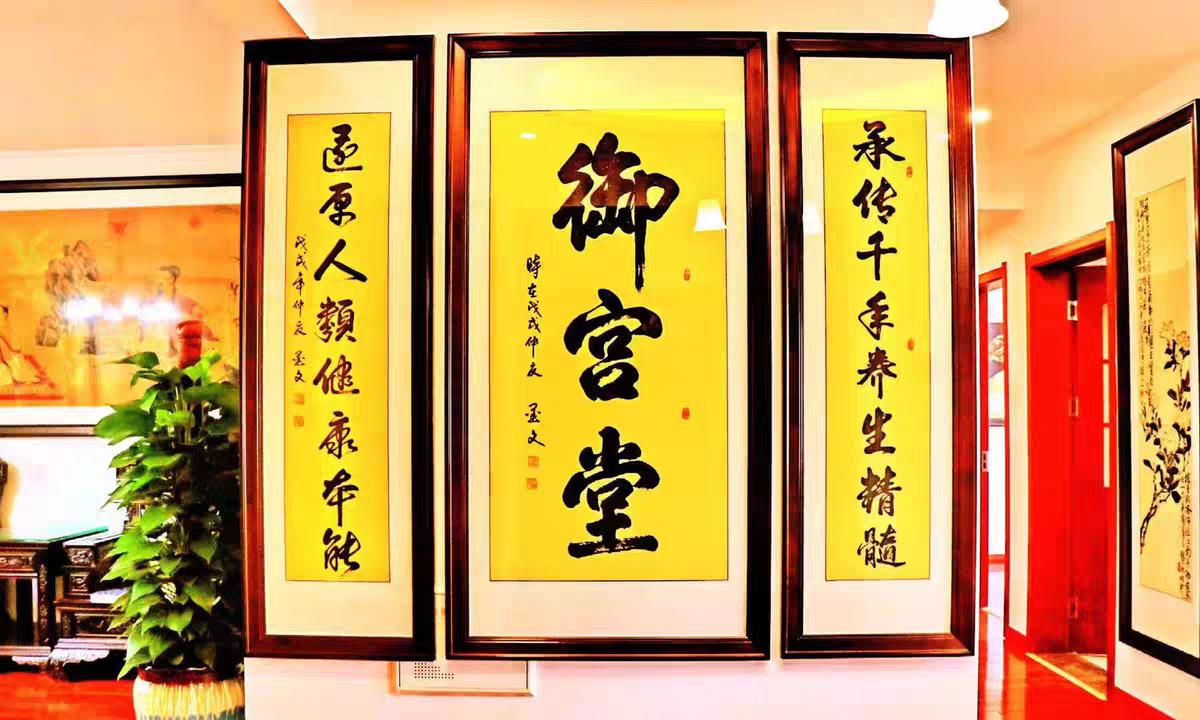 承传千年养生精髓
御宫堂
時在戊戌仲夏 墨文
還原人類健康本能
戊戌年仲夏 墨文